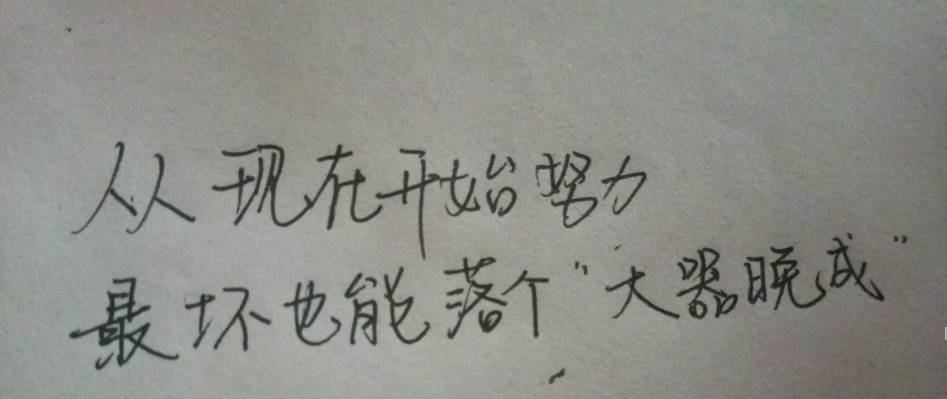 从现在开始努力
最坏也能落个“大器晚成”